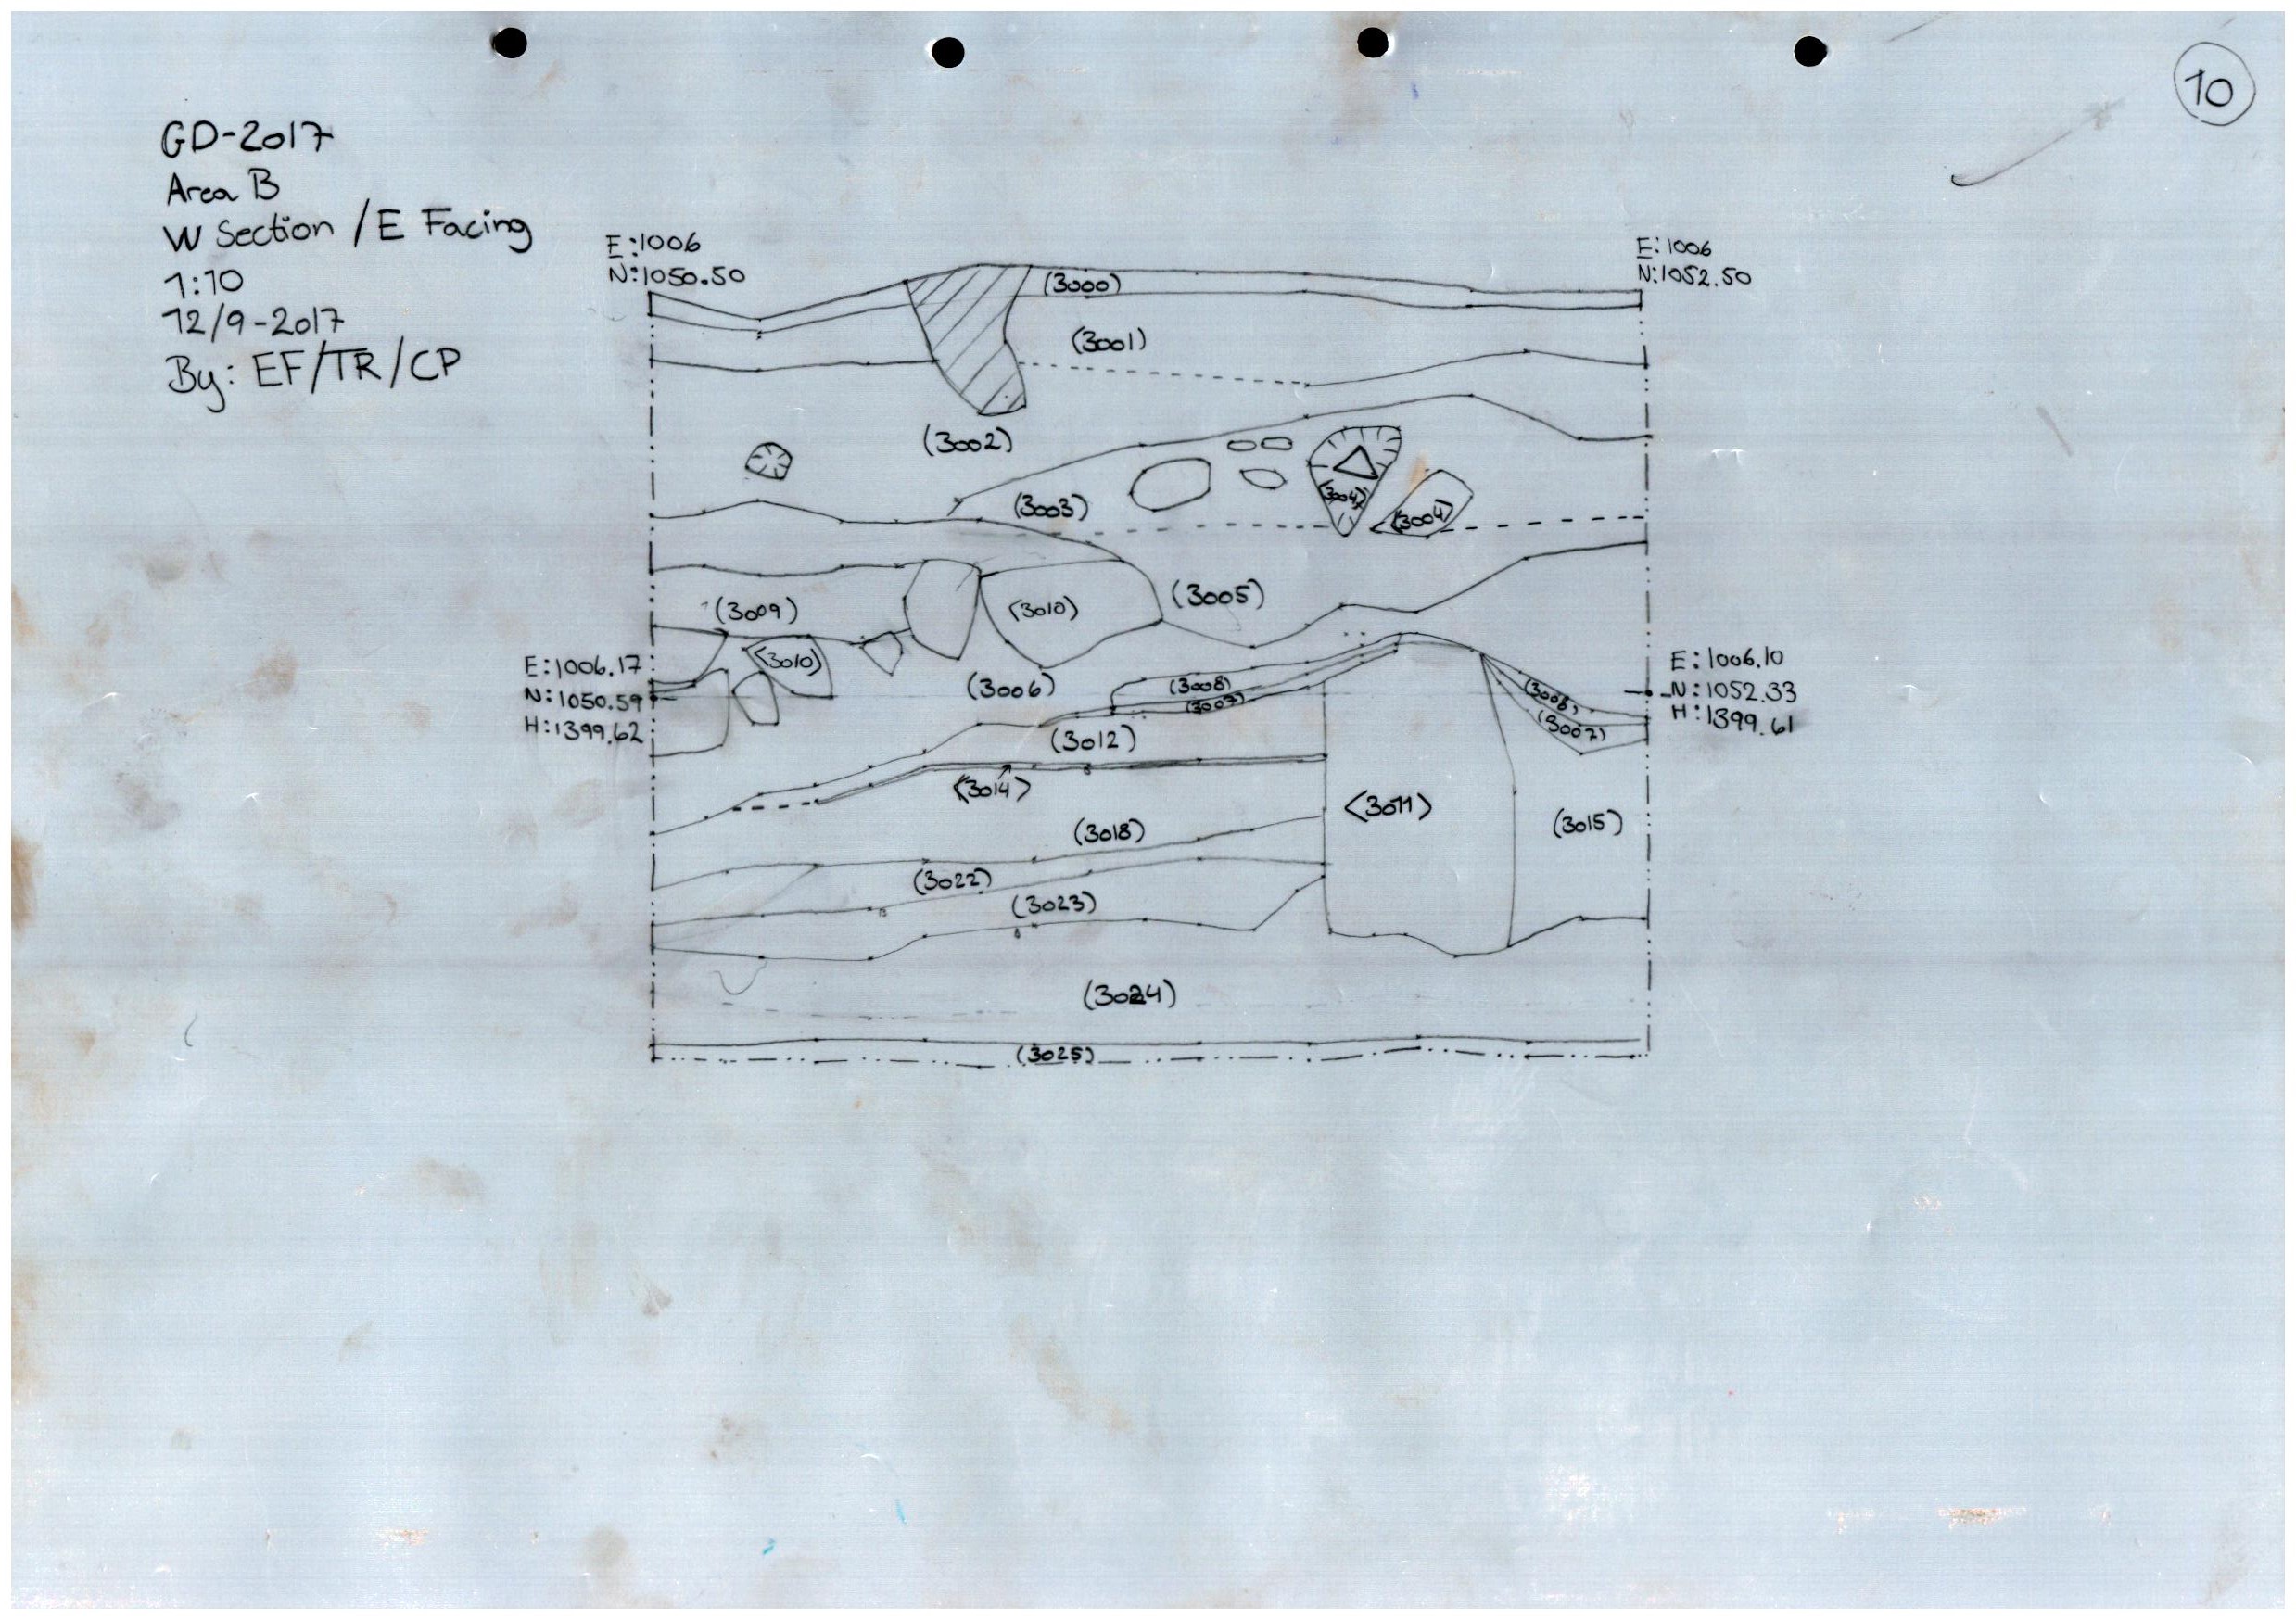 10
GD-2017
Area B
W Section / E Facing
1:10
12/9-2017
By: EF/TR/CP
E:1006
N:1050.50
E:1006
N:1052.50
(3000)
(3001)
(3002)
(3003)
<3004>
<3004>
(3005)
(3009)
<3010>
<3010>
E:1006.17
N:1050.59
H:1399.62
(3006)
(3008)
(3007)
(3008)
(3007)
E:1006.10
N:1052.33
H:1399.61
(3012)
<3014>
<3011>
(3015)
(3018)
(3022)
(3023)
(3024)
(3025)